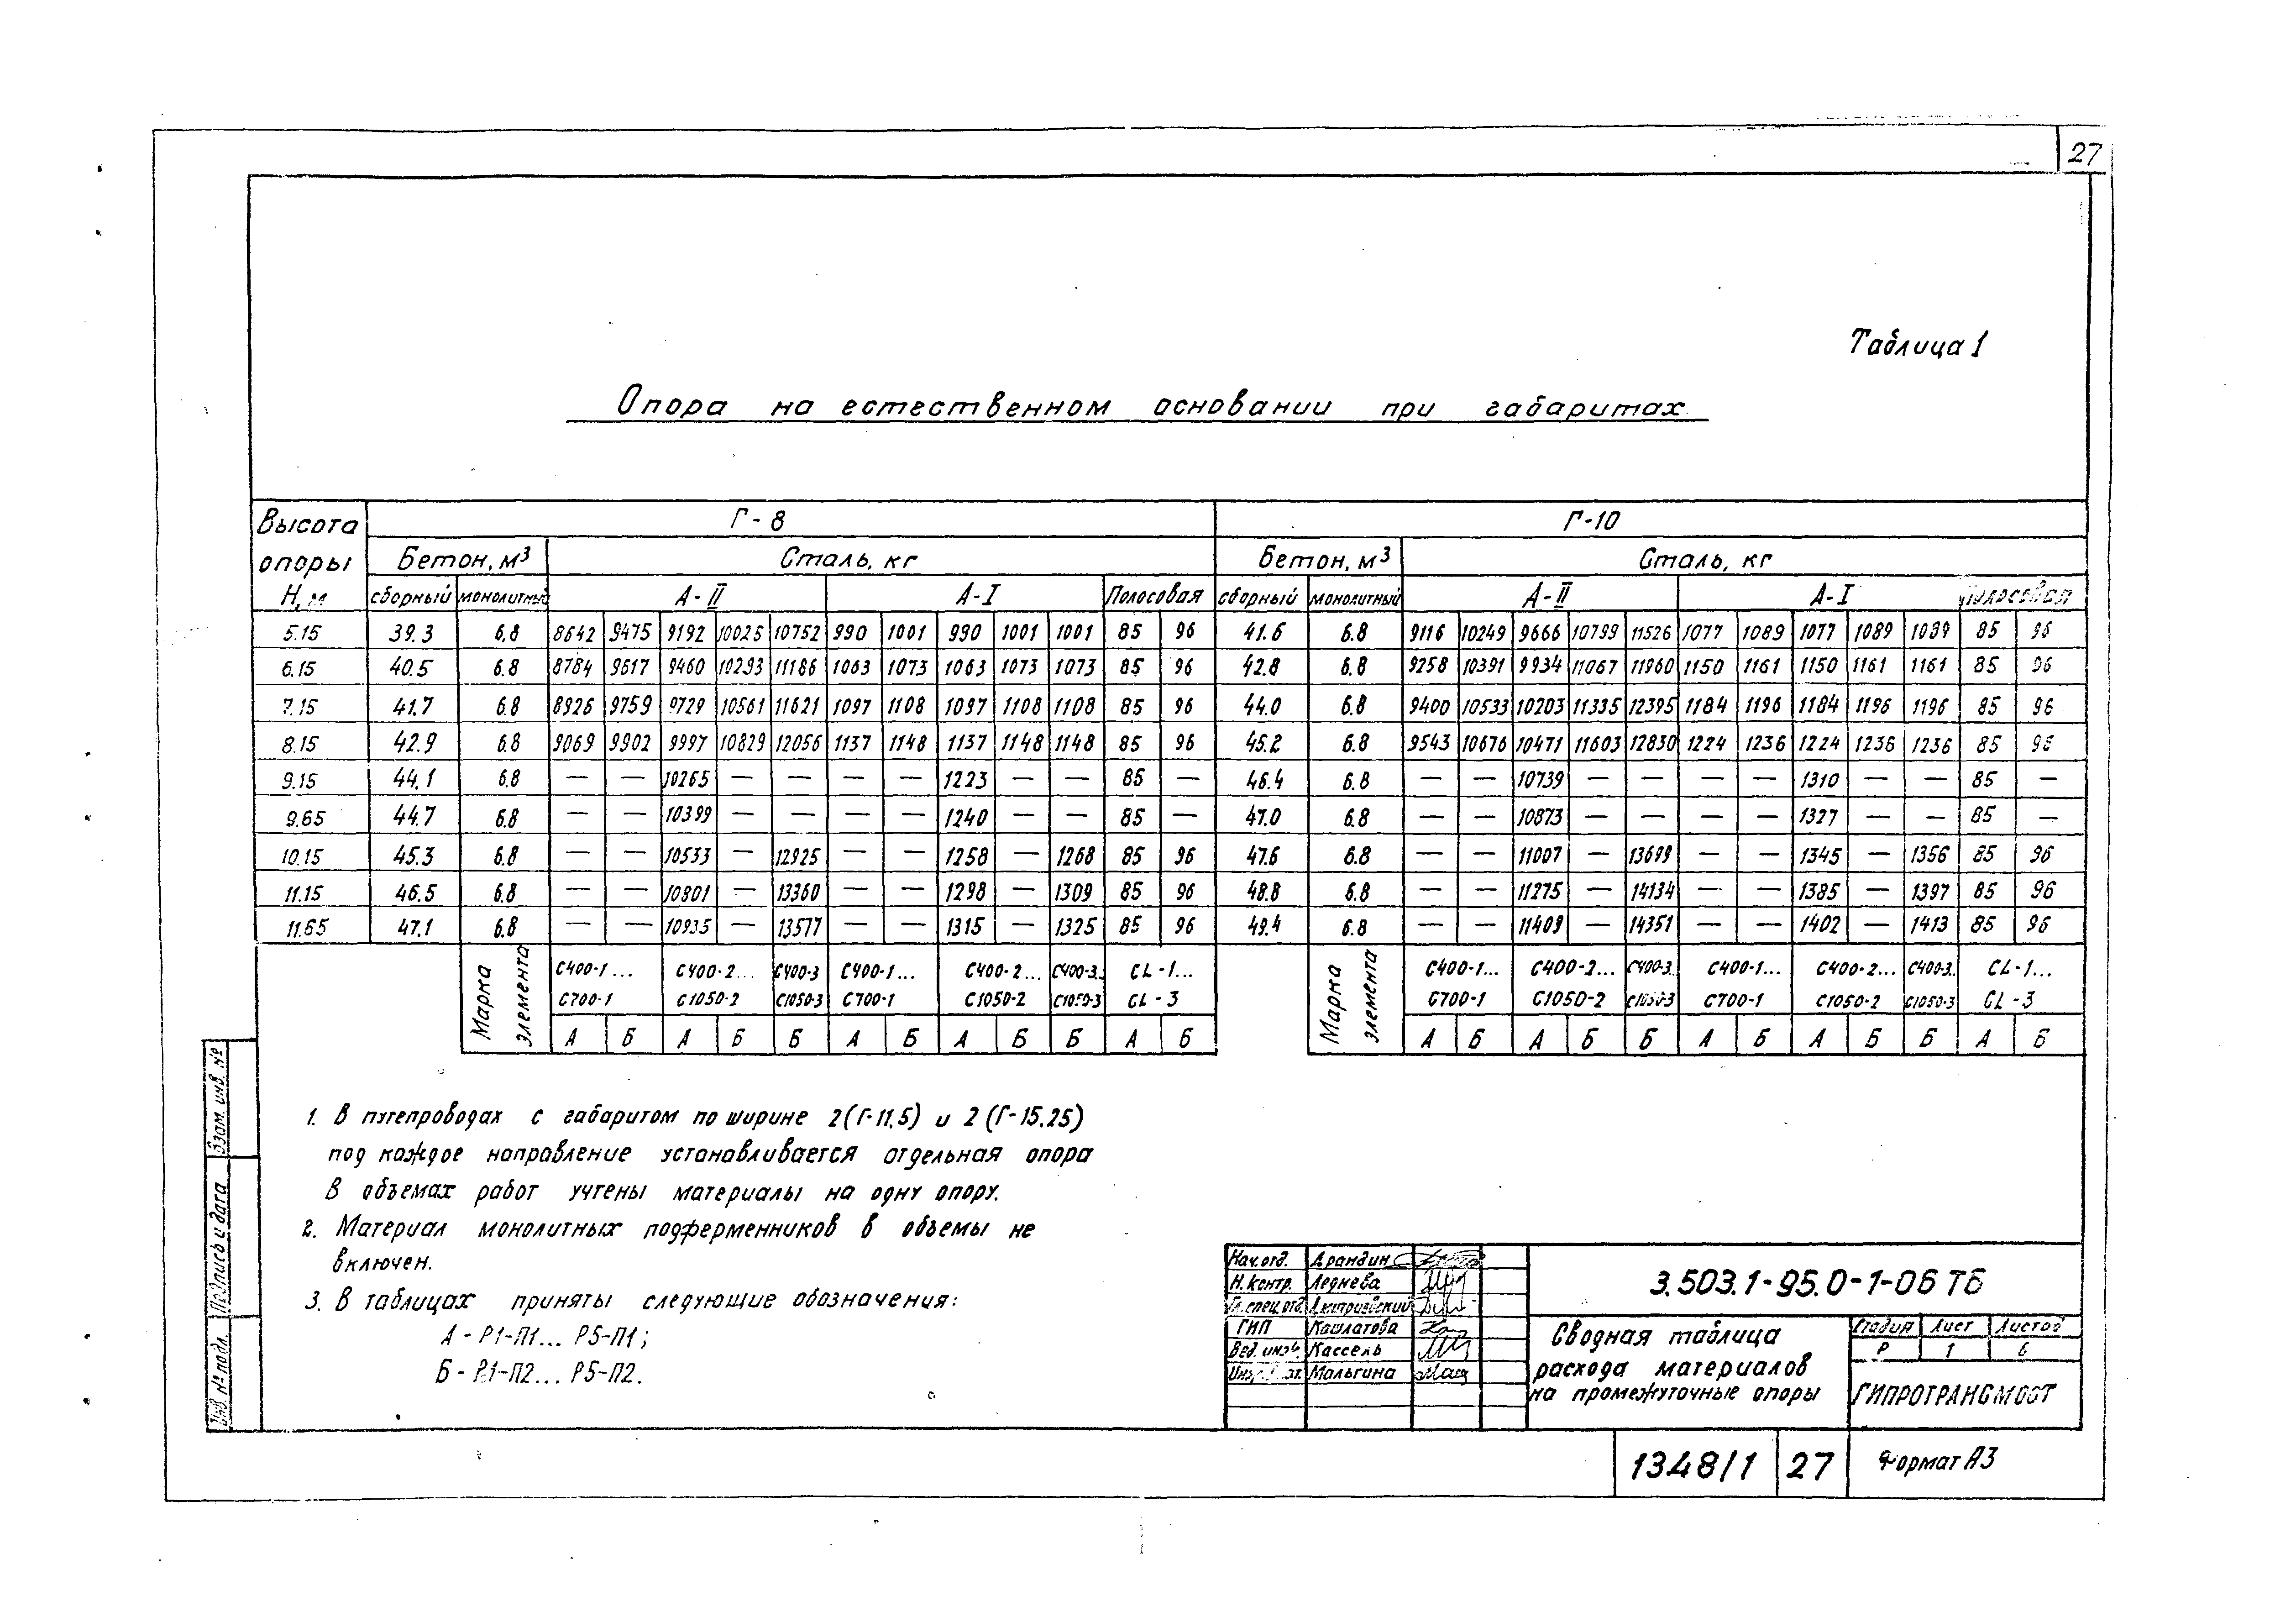 27
Таблица 1
Опора на естественном основании при габаритах
Высота опоры Н, м | Г-8 | Г-10
Бетон, м³ | Сталь, кг | Бетон, м³ | Сталь, кг
сборный | монолитный | А-II | А-I | Полосовая | сборный | монолитный | А-II | А-I | Полосовая
5.15 39.3 6.8 8642 9475 9192 10025 10752 990 1001 990 1001 1001 85 96 41.6 6.8 9116 10249 9666 10799 11526 1077 1089 1077 1089 1089 85 96
6.15 40.5 6.8 8784 9617 9460 10293 11186 1063 1073 1063 1073 1073 85 96 42.8 6.8 9258 10391 9934 11067 11960 1150 1161 1150 1161 1161 85 96
7.15 41.7 6.8 8926 9759 9729 10561 11621 1097 1108 1097 1108 1108 85 96 44.0 6.8 9400 10533 10203 11335 12395 1184 1196 1184 1196 1196 85 96
8.15 42.9 6.8 9069 9902 9997 10829 12056 1137 1148 1137 1148 1148 85 96 45.2 6.8 9543 10676 10471 11603 12830 1224 1236 1224 1236 1236 85 96
9.15 44.1 6.8 — — 10265 — — — — 1223 — — 85 — 46.4 6.8 — — 10739 — — — — 1310 — — 85 —
9.65 44.7 6.8 — — 10399 — — — — 1240 — — 85 — 47.0 6.8 — — 10873 — — — — 1327 — — 85 —
10.15 45.3 6.8 — — 10533 — 12925 — — 1258 — 1268 85 96 47.6 6.8 — — 11007 — 13699 — — 1345 — 1356 85 96
11.15 46.5 6.8 — — 10801 — 13360 — — 1298 — 1309 85 96 48.8 6.8 — — 11275 — 14134 — — 1385 — 1397 85 96
11.65 47.1 6.8 — — 10935 — 13577 — — 1315 — 1325 85 96 49.4 6.8 — — 11409 — 14351 — — 1402 — 1413 85 96
Марка элемента | С400-1... С700-1 | С400-2... С1050-2 | С400-3 С1050-3 | С400-1... С700-1 | С400-2... С1050-2 | С400-3.. С1050-3 | СL-1... СL-3 | Марка элемента | С400-1... С700-1 | С400-2... С1050-2 | С400-3.. С1050-3 | С400-1... С700-1 | С400-2... С1050-2 | С400-3.. С1050-3 | СL-1... СL-3
А Б А Б Б А Б А Б Б А Б А Б А Б Б А Б А Б Б А Б
1. В путепроводах с габаритом по ширине 2(Г-11.5) и 2 (Г-15.25)
под каждое направление устанавливается отдельная опора
В объемах работ учтены материалы на одну опору.
2. Материал монолитных подферменников в объемы не
включен.
3. В таблицах приняты следующие обозначения:
А - Р1-П1... Р5-П1;
Б - Р1-П2... Р5-П2.
Взам. инв. №
Подпись и дата
Инв. № подл.
Нач. отд. Арандин
Н. контр. Леднева
Гл. спец. отд.
ГИП Кашлатова
Вед. инж. Кассель
Мальгина
3.503.1-95.0-1-06 ТБ
Сводная таблица
расхода материалов
на промежуточные опоры
Стадия Лист Листов
Р 1 6
ГИПРОТРАНСМОСТ
1348/1 27 Формат А3